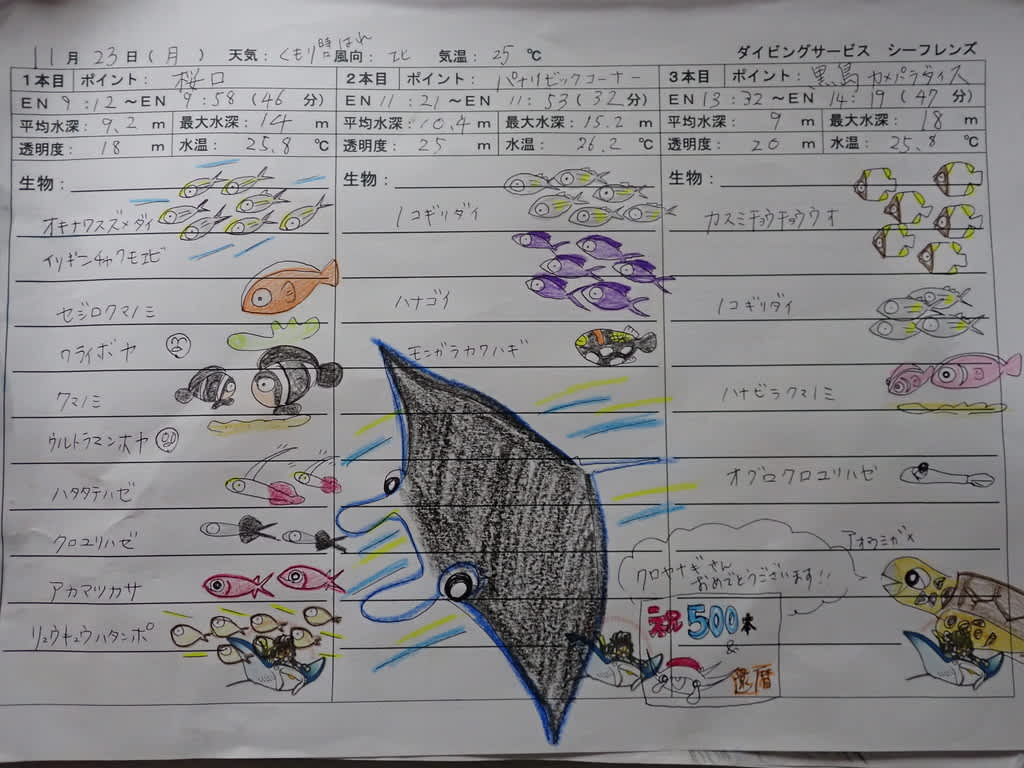 11月 23日(月) 天気: くもり時々はれ 風向: 北 気温: 25℃ ダイビングサービス シーフレンズ
1本目 ポイント: 桜口
EN 9:12～EN 9:58(46分)
平均水深: 9.2 m 最大水深: 14 m
透明度: 18 m 水温: 25.8 ℃
生物:
オキナワスズメダイ
イソギンチャクモエビ
セジロクマノミ
ワライボヤ
クマノミ
ウルトラマンホヤ
ハタタテハゼ
クロユリハゼ
アカマツカサ
リュウキュウハタンポ
2本目 ポイント: パナリビックコーナー
EN 11:21～EN 11:53(32分)
平均水深: 10.4 m 最大水深: 15.2 m
透明度: 25 m 水温: 26.2 ℃
生物:
ノコギリダイ
ハナゴイ
モンガラカワハギ
3本目 ポイント: 黒島カメパラダイス
EN 13:32～EN 14:19(47分)
平均水深: 9 m 最大水深: 18 m
透明度: 20 m 水温: 25.8 ℃
生物:
カスミチョウチョウウオ
ノコギリダイ
ハナビラクマノミ
オグロクロユリハゼ
アオウミガメ
クロヤナギさん
おめでとうございます!!
祝500本
&
還暦